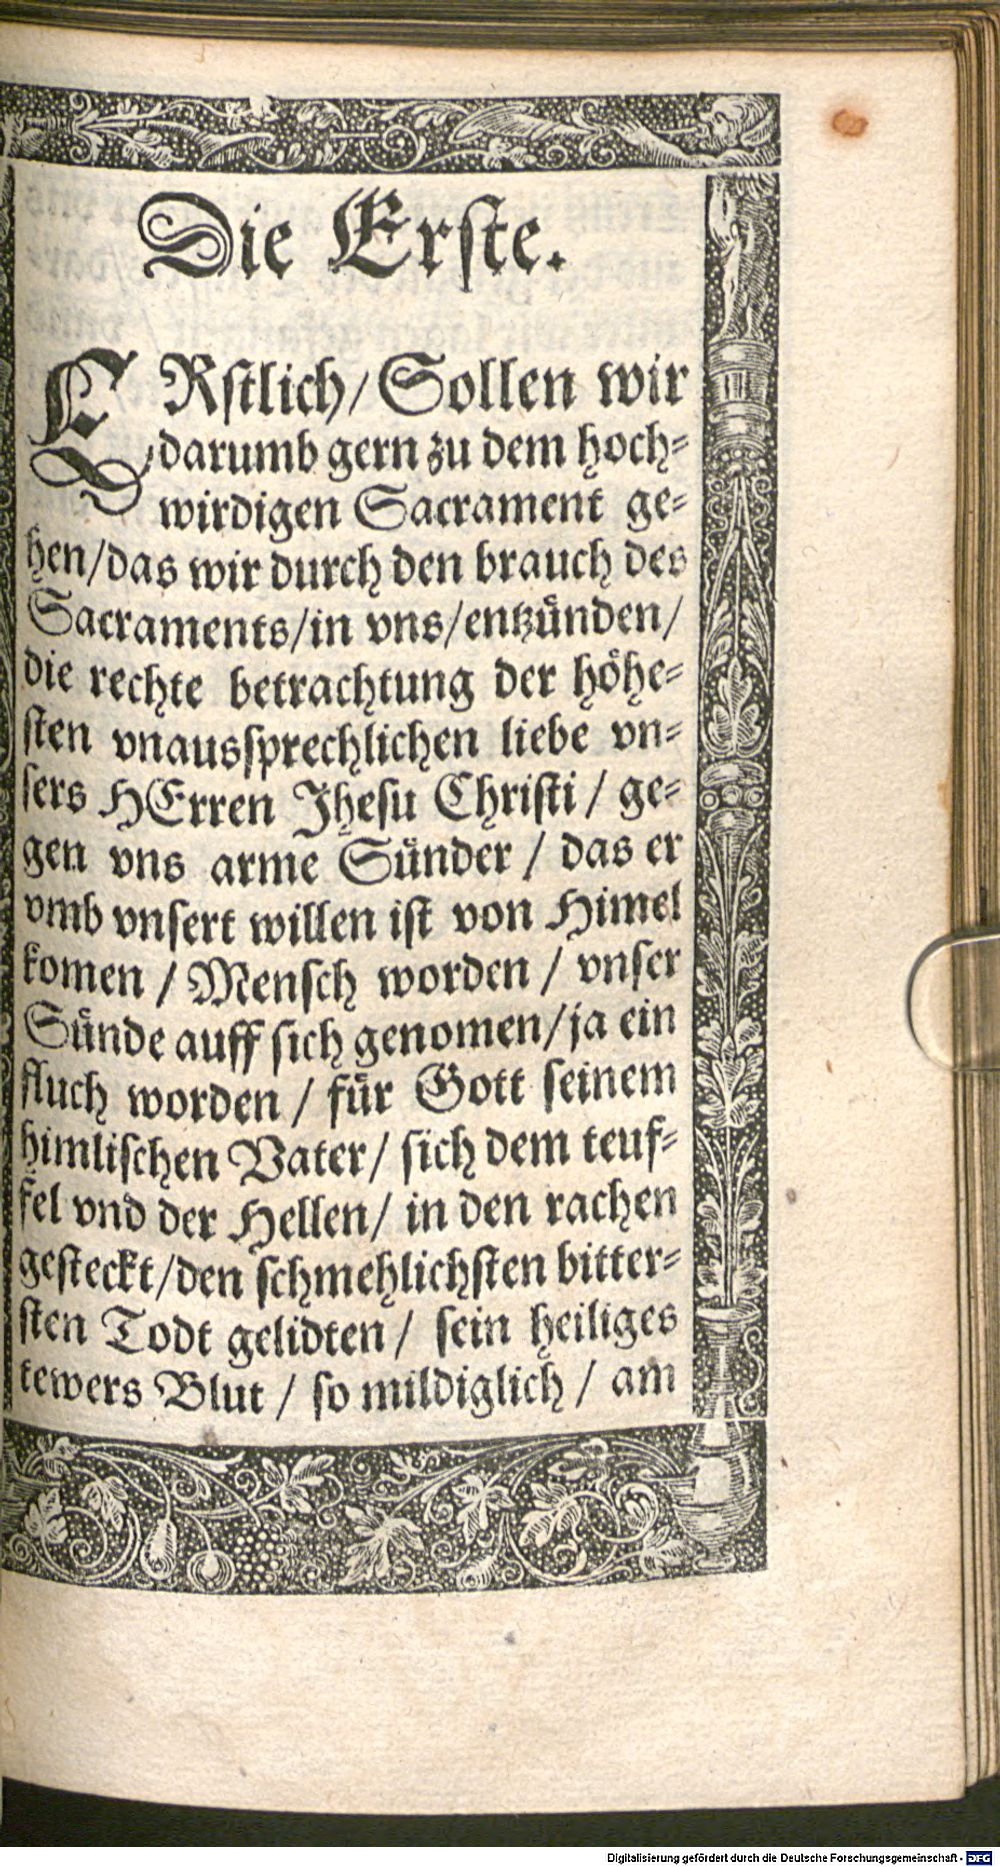 Die Erste.
ERstlich/ Sollen wir
darumb gern zu dem hoch⸗
wirdigen Sacrament ge⸗
hen/das wir durch den brauch des
Sacraments/in vns/entzünden/
die rechte betrachtung der höhe⸗
sten vnaussprechlichen liebe vn⸗
sers HErren Jhesu Christi / ge⸗
gen vns arme Sünder / das er
vmb vnsert willen ist von Himel
komen / Mensch worden / vnser
Sünde auff sich genomen/ja ein
fluch worden / für Gott seinem
himlischen Vater/ sich dem teuf⸗
fel vnd der Hellen/ in den rachen
gesteckt/den schmehlichsten bitter⸗
sten Todt gelidten / sein heiliges
tewers Blut / so mildiglich / am
Digitalisierung gefördert durch die Deutsche Forschungsgemeinschaft - DFG